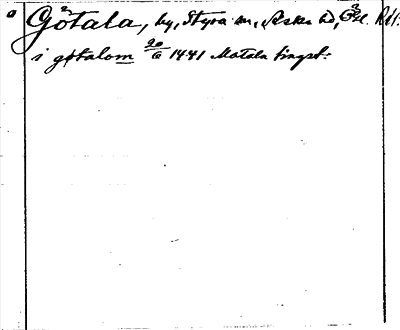 Götala, by, Styra sn, Aska hd, Ögl.
i gøtalom 20/6 1441 Motala tingst: